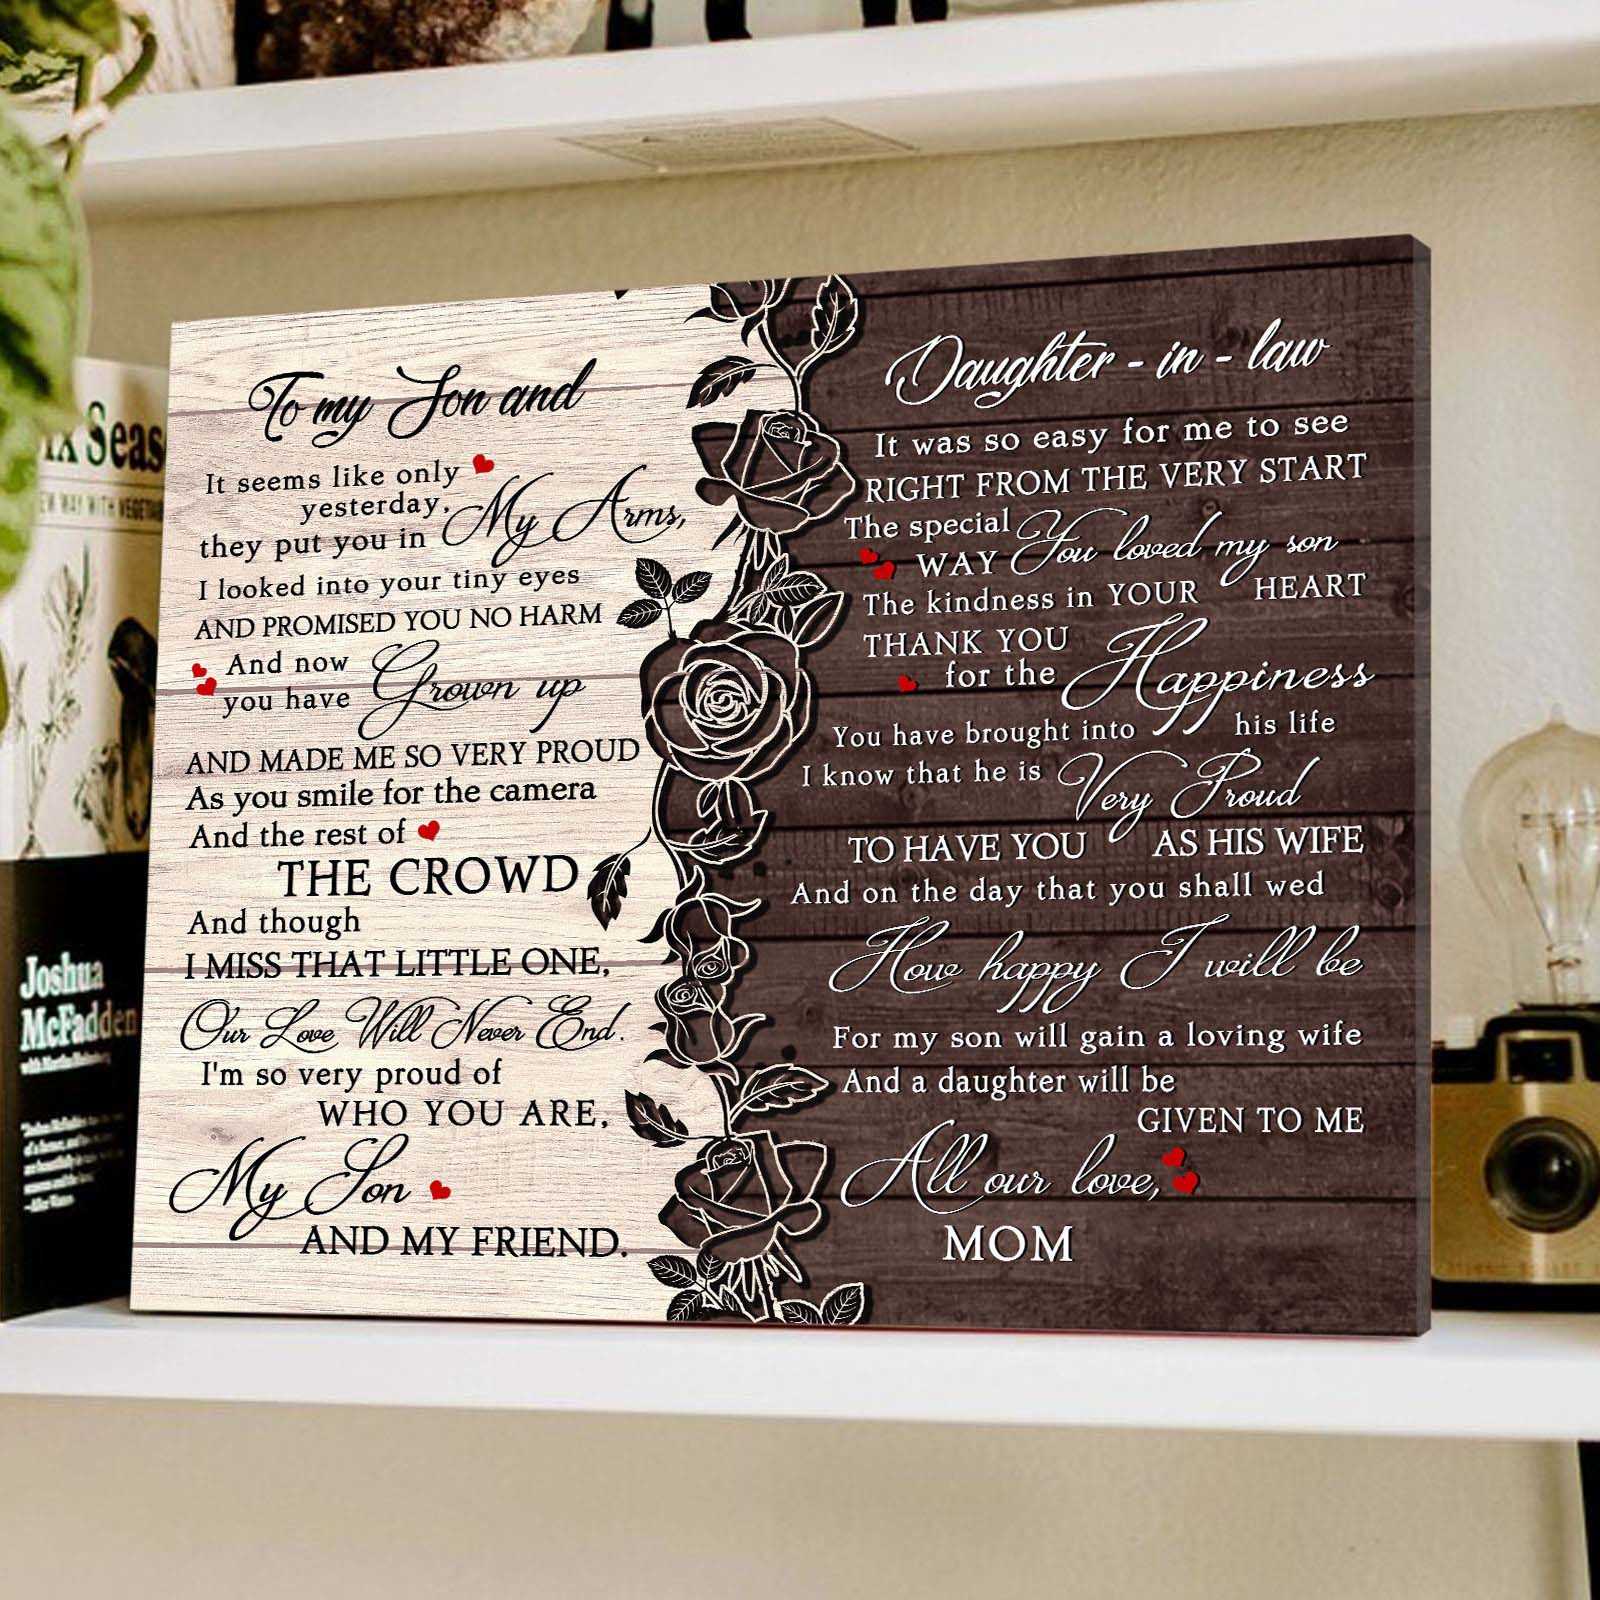 To my Son and
It seems like only
yesterday,
they put you in My Arms,
I looked into your tiny eyes
AND PROMISED YOU NO HARM
And now
you have Grown up
AND MADE ME SO VERY PROUD
As you smile for the camera
And the rest of
THE CROWD
And though
I MISS THAT LITTLE ONE,
Our Love Will Never End.
I'm so very proud of
WHO YOU ARE,
My Son
AND MY FRIEND.
Daughter - in - law
It was so easy for me to see
RIGHT FROM THE VERY START
The special
WAY You loved my son
The kindness in YOUR HEART
THANK YOU
for the Happiness
You have brought into his life
I know that he is Very Proud
TO HAVE YOU AS HIS WIFE
And on the day that you shall wed
How happy I will be
For my son will gain a loving wife
And a daughter will be
GIVEN TO ME
All our love,
MOM
Seas
WAY WITH
Joshua
McFadden